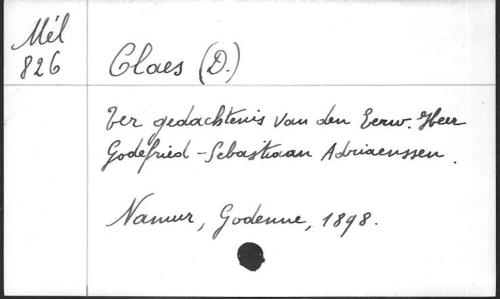 Mél
826
Claes (D.)
Ter gedachtenis van den Eerw. Heer
Godefried-Sebastiaan Adriaenssen.
Namur, Godenne, 1898.